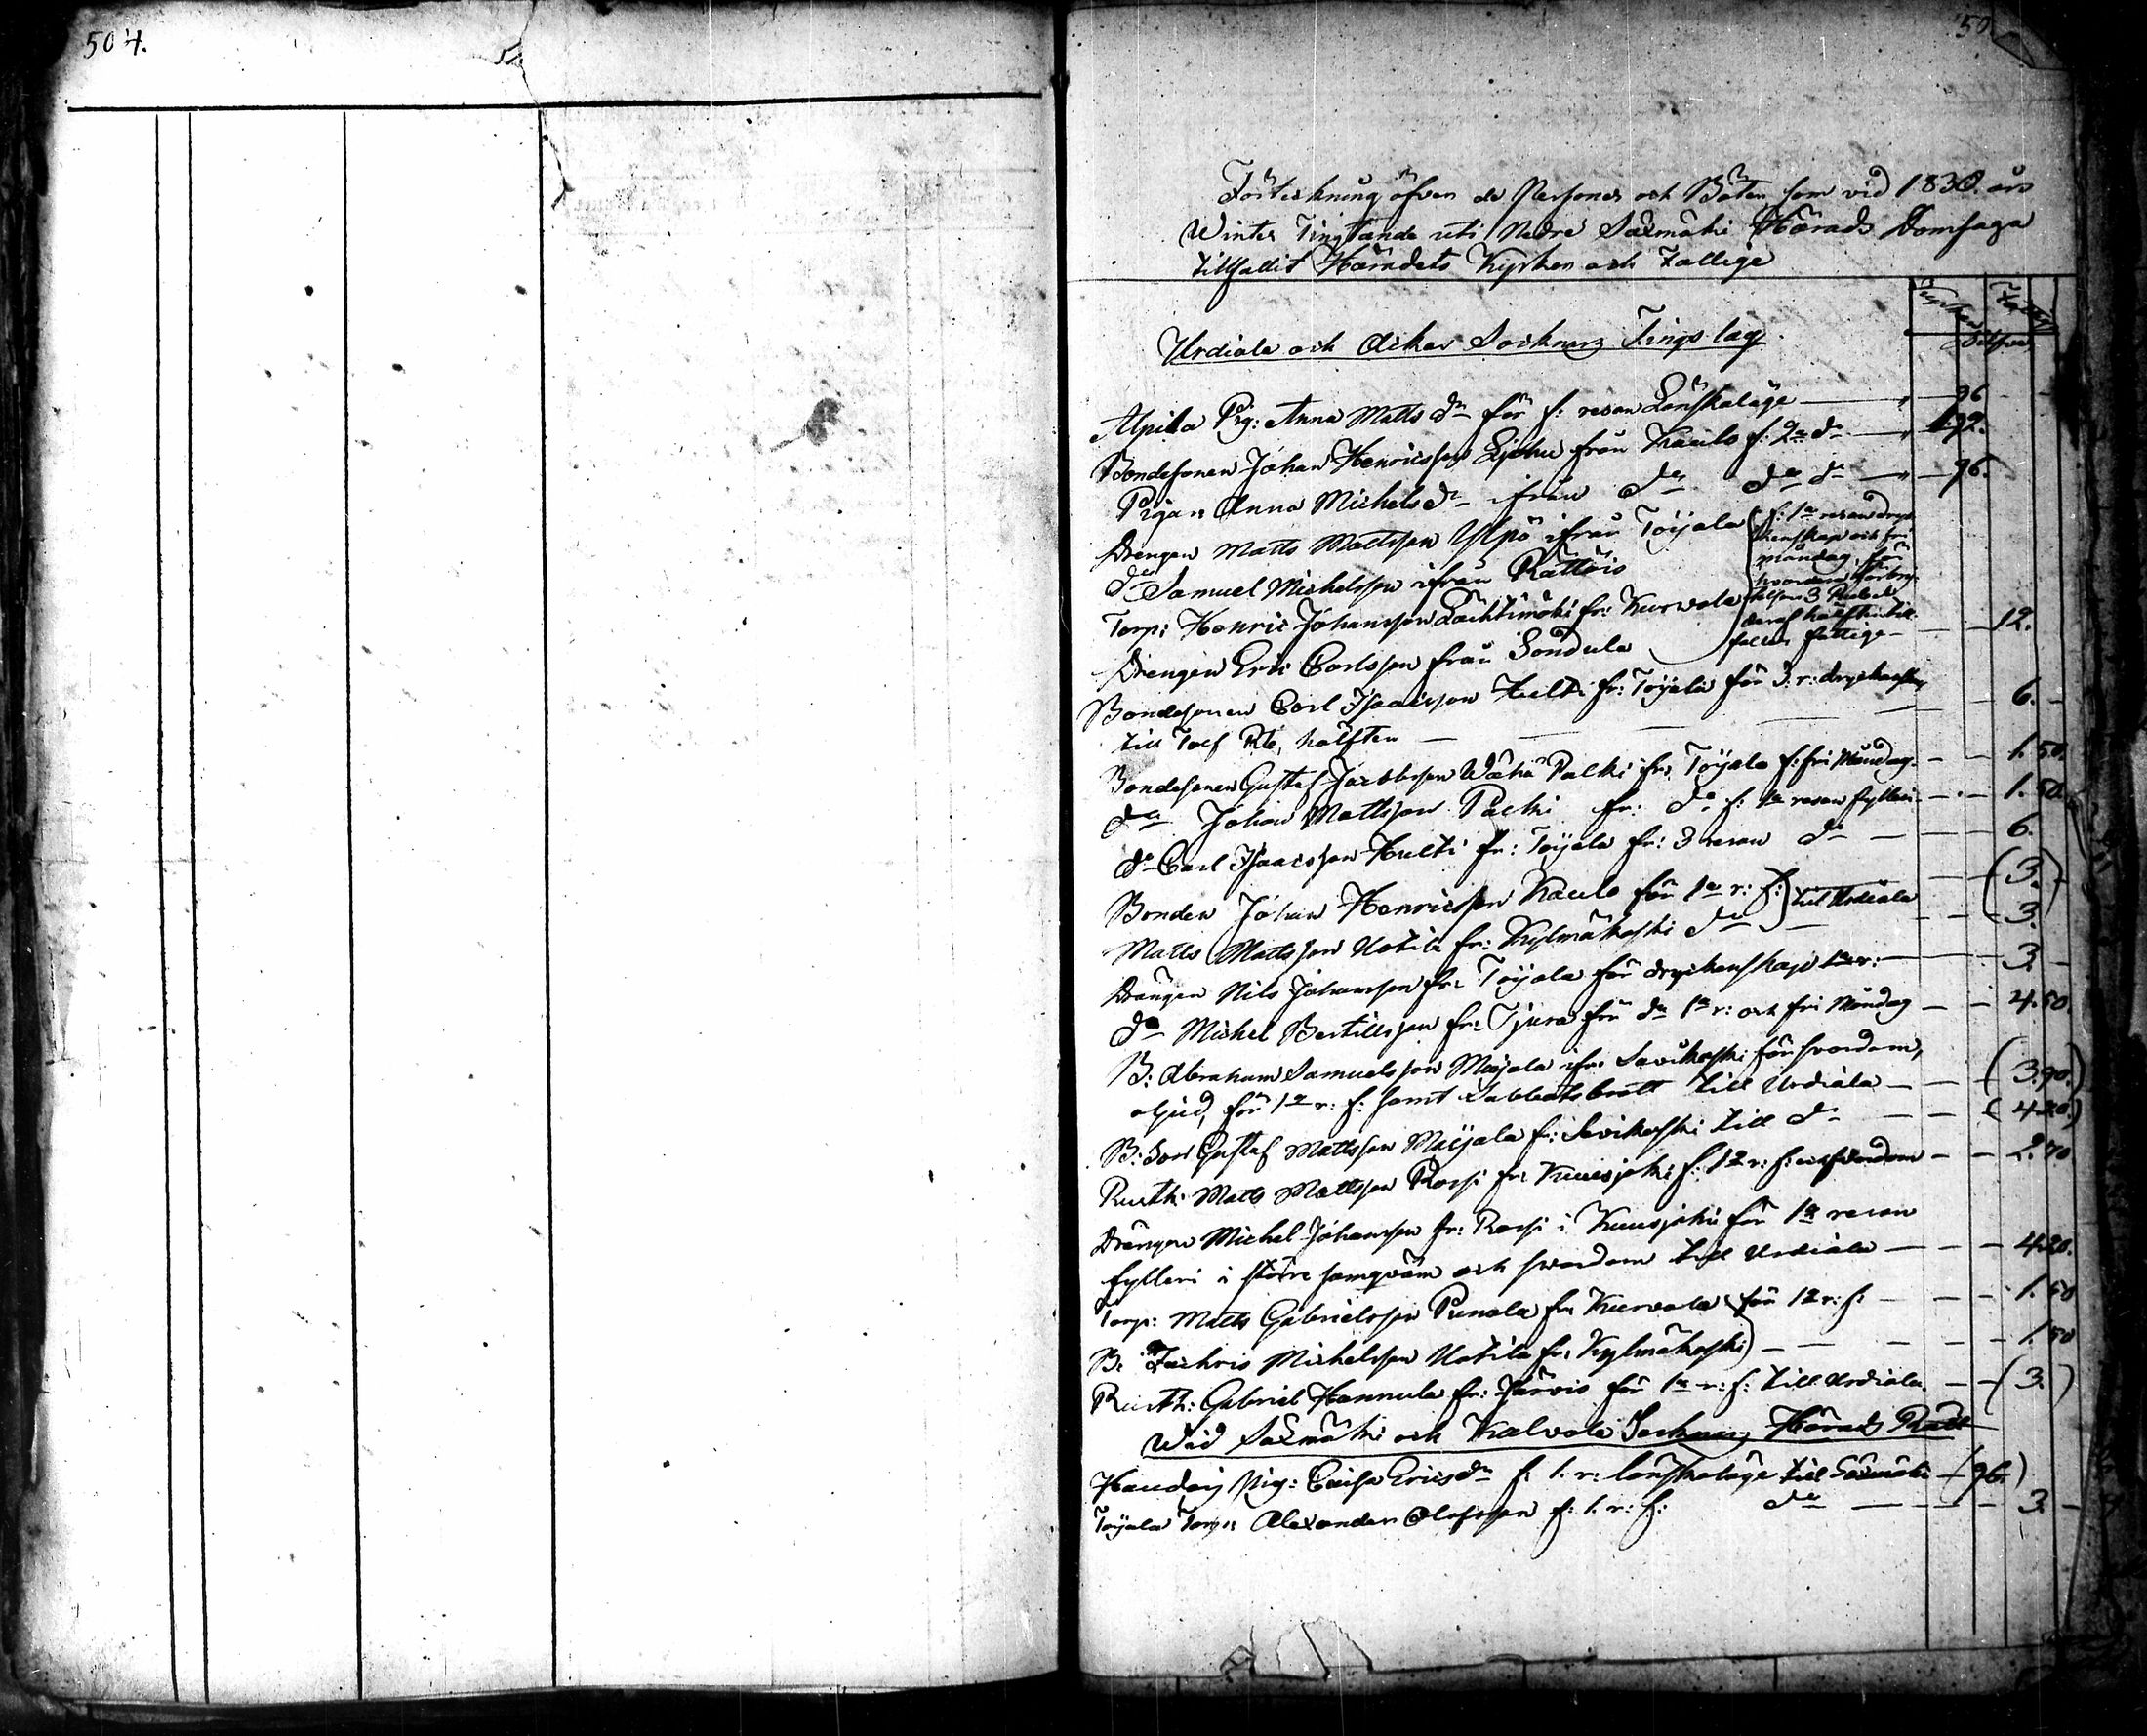 504.
50
Förteckning öfver de Personer och Böter som vid 1830. års
Winter Ting Tände uti Nedre Säxmäki Härads Domsaga
tillfallit Häradets Kyrkor och Fattige
Kyrkor Fattige
Urdiala och Ackas Socknars Tings lag
Alpila Pig: Anna Matts dr för f: resan Lönskaläge — 96
Bondesonen Johan Henricsson Eljohu från Kaulo f: 2a do — 1.92.
Pigan Anna Michelsdr ifrån do do do — 96.
Drengen Matts Mattsson Ylpö ifrån Toijala f: 1a resan dryc
kenskap och fri
måndag, för
do Samuel Michelsson ifrån Rättöis
3 Rubel
Torp: Henric Johansson Lachtimäki fr: Kurvola
deraf hälften till
faller fattige — 12.
Drengen Eric Carlsson från Sondula
Bondesonen Carl Isaacsson Hulti fr: Toijala för 3. r: dryckenskap
till Tolf Rb, hälften — 6.
Bondesonen Gustaf Jacobsson Wähä Palki fr: Toijala f: fri Måndag — 1.50.
do Johan Mattsson Palki fr: do f: 1a resan fylleri — 1.50.
do Carl Isaacsson Hulti fr: Toijala fr: 3 resan do — 6.
Bonden Johan Henricsson Kaulo för 1a r: f: till Urdiala — (3.)
Matts Mattsson Uotila fr: Kylmäkoski do — 3.
Drängen Nils Johansson fr: Toijala för dryckenskap 1a r: — 3.
do Michel Bertillsson fr: Tjura för do 1a r: och fri Måndag — 4.50.
B: Abraham Samuelsson Maijala ifr: Savikoski för svordom,
oljud, för 1a r: f: samt Sabbatsbrott till Urdiala — (3.90.)
B: Son Gustaf Mattsson Maijala fr: Savikoski till do — (4.20.)
Rusth: Matts Mattsson Rossi fr: Kuusjoki f: 1a r: f: och svordom — 2.70
Drängen Michel Johansson fr: Rossi i Kuusjoki för 1a resan
fylleri i större samqväm och svordom till Urdiala — 4.20.
Torp: Matts Gabrielsson Punala fr: Kurvola för 1a r: f: — 1.50
B: Zachris Michelsson Uotila fr: Kylmäkoski — 1.50
Rusth: Gabriel Hannula fr: Järvis för 1a r: f: till Urdiala. — (3.)
Wid Säxmäki och Kalvola Socknars Härads Rätt
Haudoij Pig: Caisa Ericsdr f. 1. r: lönskaläge till Säxmäki — (96.)
Toijala Torp: Alexander Olofsson f: 1. r: f: do — 3.